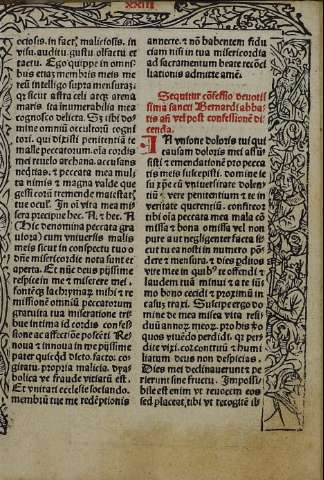 xxiii
ociosis. in factȩ malicioſis. in
viſu. auditu. guſtu olfactu et
tactu. Ego quippe in omni-
bus etaȥ membris meis me
reū intelligo ſupra menſuraȥ:
qȝ ſicut aſtra celi atqȝ arena
maris ita innumerabilia mea
cognoſco delicta. Sȥ tibi do-
mine omniū occultoꝝ cogni
tori. qui dixiſti penitentiā te
malle peccatorum. oīa cordis
mei reuelo archana. accuſans
neqͥtias. ⁊ peccata mea mul-
ta nimis ⁊ magna valde que
geſſi corā tremenda maieſtatȩ
tue ocul'. In oī vita mea mi
ſera precipue hec. A. ⁊ hec. A
(Hic denomina peccata gra
uiora) cum vniuerſis malis
meis ſicut in conſpectu tuo o
dn̄e miſericordie nota ſunt et
aperta. Et nūc deus pijſſime
reſpice in me ⁊ miſerere mei.
fontēqȝ lachrymaꝝ mihi ⁊ re
miſſionē omniū peccatorum
gratuita tua miſeratione tri
bue intima id cordis confeſ
ſione ac affectiōe poſcēti Re
noua ⁊ innoua in me pijſſime
pater quicqͥd dicto. facto. co-
gitatu. propria malicia. dya
bolica ve fraude vitiatū eſt.
Et vnitati eccleſie ſociando.
membrū tue me redēptionis
annecte. ⁊ nō habentem fidu
ciam niſi in tua miſericordia
ad ſacramentum beate recōci
liationis admitte amē.
Sequitur cōfeſſio deuotiſ
ſima ſancti Bernardi abba-
tis añ vel poſt confeſſionē di
cenda.
IN vnione doloris tui qui
cauſam doloris mei aſſū
ſiſti ⁊ emendationē pro pecca
tis meis ſuſcepiſti. domine ie
ſu xp̄e cū vniuerſitate dolen
tiū ⁊ vere penitentium ⁊ te in
veritate querenciū. confiteor
tibi oīa peccata mea mala cō
miſſa ⁊ bona omiſſa vel non
pure aut negligenter facta ſi-
cut tu ea noſti in numero pō
dere ⁊ menſura. ⁊ dies ꝑditos
vite mee in quibȝ te offendi ⁊
laudem tuā minui ⁊ a te ſūmo
bono cecidi ⁊ proximū in
caſus traxi. Suſcipe ergo do
mine de mea miſera vita reſi
duū annoꝝ meoꝝ. pro his ꝟo
quos viuēdo perdidi. qꝛ per-
dite vixi. cor contritū ⁊ humi
liatum deus non deſpicias.
Dies mei declinauerunt ⁊ pe
rierunt ſine fructu. Impoſſi-
bile eſt enim vt reuocem eos
ſed placeat tibi vt recogitē ti